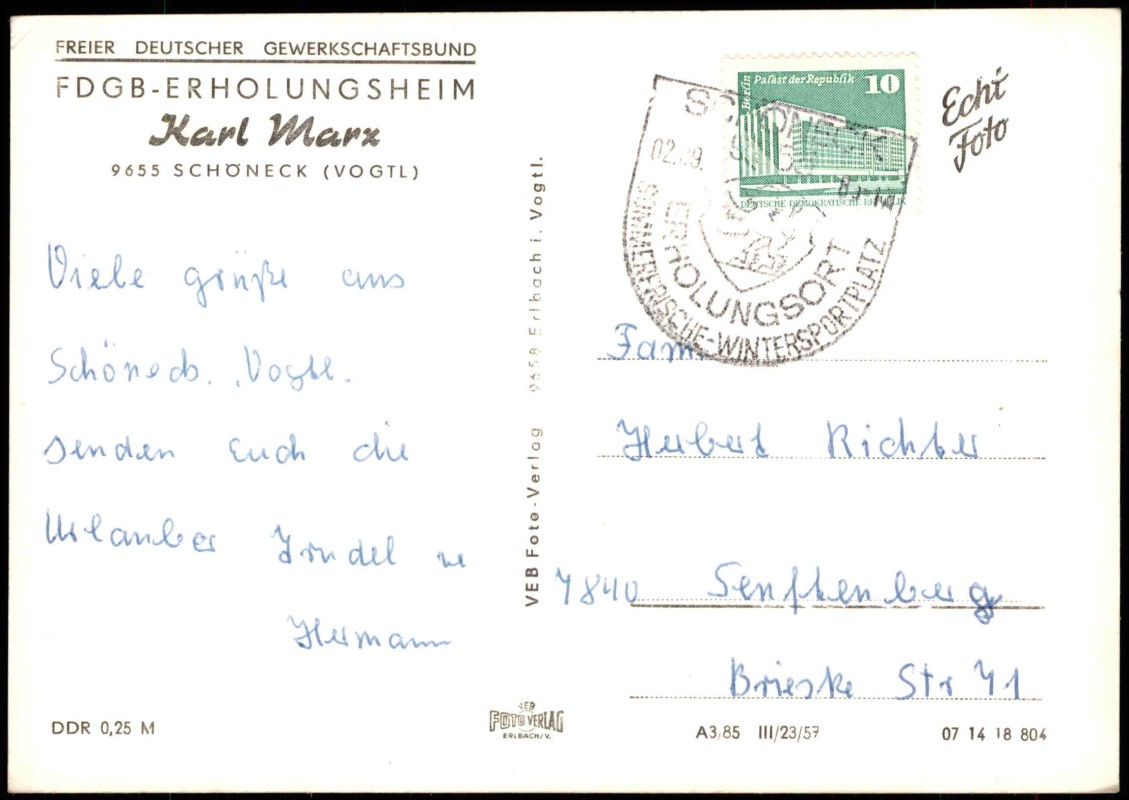 FREIER DEUTSCHER GEWERKSCHAFTSBUND
FDGB-ERHOLUNGSHEIM
Karl Marx
9655 SCHÖNECK (VOGTL)
Viele grüße aus
Schöneck. Vogtl.
senden Euch die
Urlauber
Hermann
DDR 0,25 M
VEB Foto-Verlag 9658 Erlbach i. Vogtl.
VEB
FOTO VERLAG
ERLBACH/V.
Berlin Palast der Republik 10
DEUTSCHE DEMOKRATISCHE REPUBLIK
Echt
Foto
SCHÖNECK
ERHOLUNGSORT
SOMMERFRISCHE-WINTERSPORTPLATZ
Fam
Herbert Richter
7840 Senftenberg
Brieske Str 41
A3/85 III/23/57
07 14 18 804